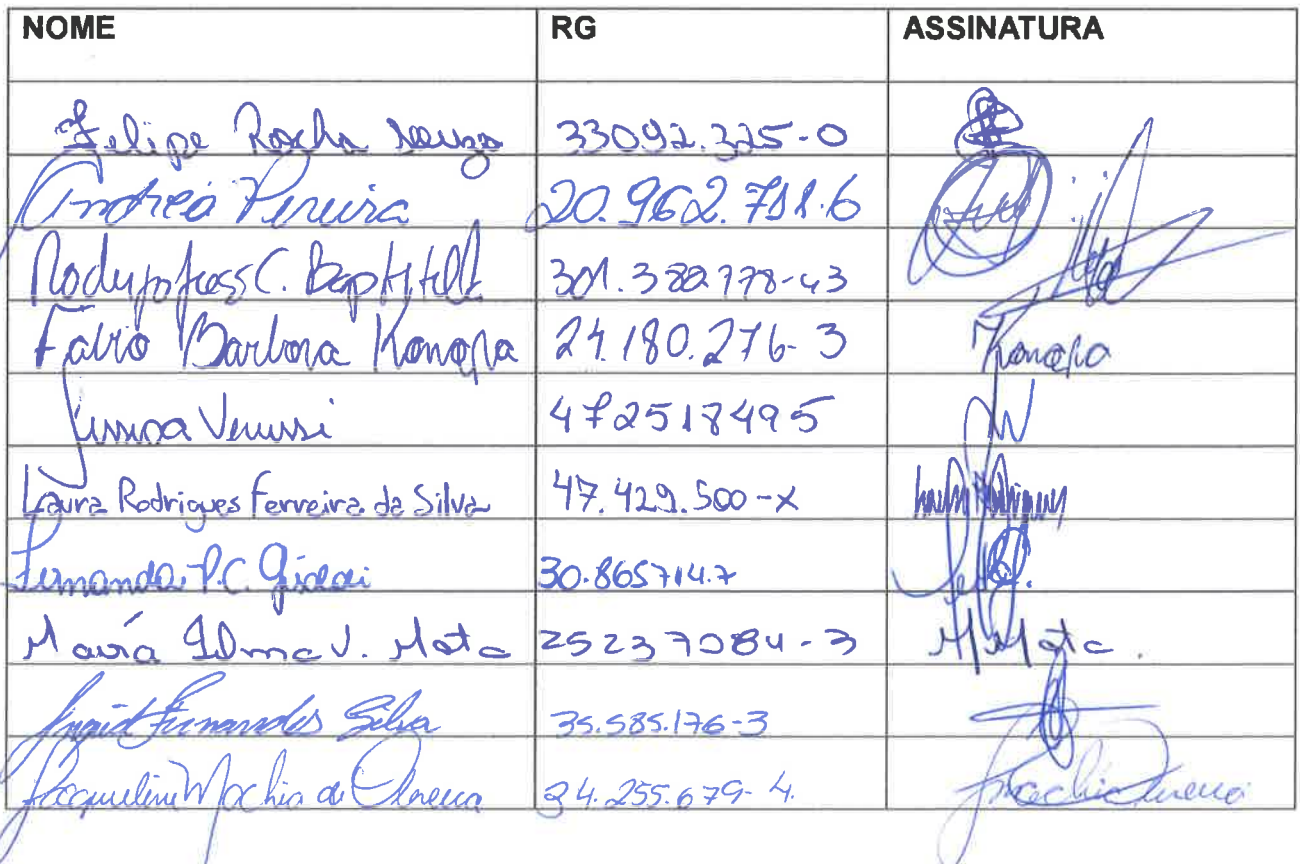 NOME RG ASSINATURA
Felipe Rocha Souza 33092.325-0
Andrea Pereira 20.962.711.6
C. 301.382778-43
Fabio Barbosa Konopa 24.180.276-3 Konopa
Venussi 472518495
Laura Rodrigues Ferreira da Silva 47.429.500-X
Fernanda P.C. 30.865714.7
Maria Ilma V. Mata 25237084-3 M Mata.
Ingrid Fernandes Silva 35.585.176-3
Jacqueline Mochia de Oliveira 34.255.679-4.